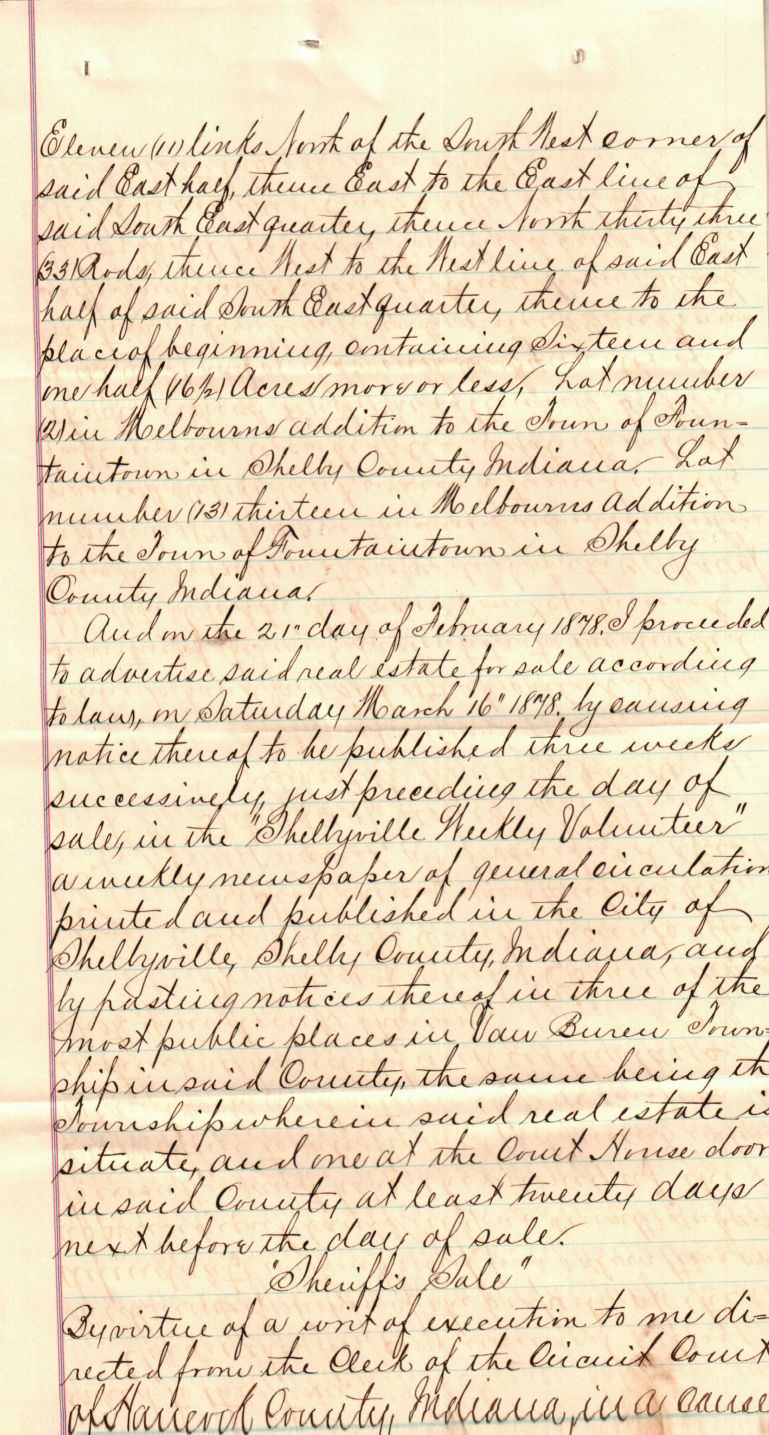 Eleven (11) links North of the South West corner of
said East half, thence East to the East line of
said South East quarter, thence North thirty three
(33) Rods, thence West to the West line of said East
half of said South East quarter, thence to the
place of beginning, containing Sixteen and
one half (16½) Acres more or less, Lot number
(2) in Melbourns addition to the Town of Foun=
taintown in Shelby County Indiana. Lot
number (13) thirteen in Melbourns Addition
to the Town of Fountaintown in Shelby
County Indiana.
And on the 21" day of February 1878. I proceeded
to advertise said real estate for sale according
to law, on Saturday March 16" 1878. by causing
notice thereof to be published three weeks
successively, just preceding the day of
sale, in the "Shelbyville Weekly Volunteer"
a weekly newspaper of general circulation
printed and published in the City of
Shelbyville, Shelby County, Indiana, and
by posting notices thereof in three of the
most public places in Van Buren Town=
ship in said County, the same being th
Township wherein said real estate is
situate, and one at the Court House door
in said County at least twenty days
next before the day of sale.
"Sheriff's Sale"
By virtue of a writ of execution to me di=
rected from the Clerk of the Circuit Court
of Hancock County, Indiana, in a cause